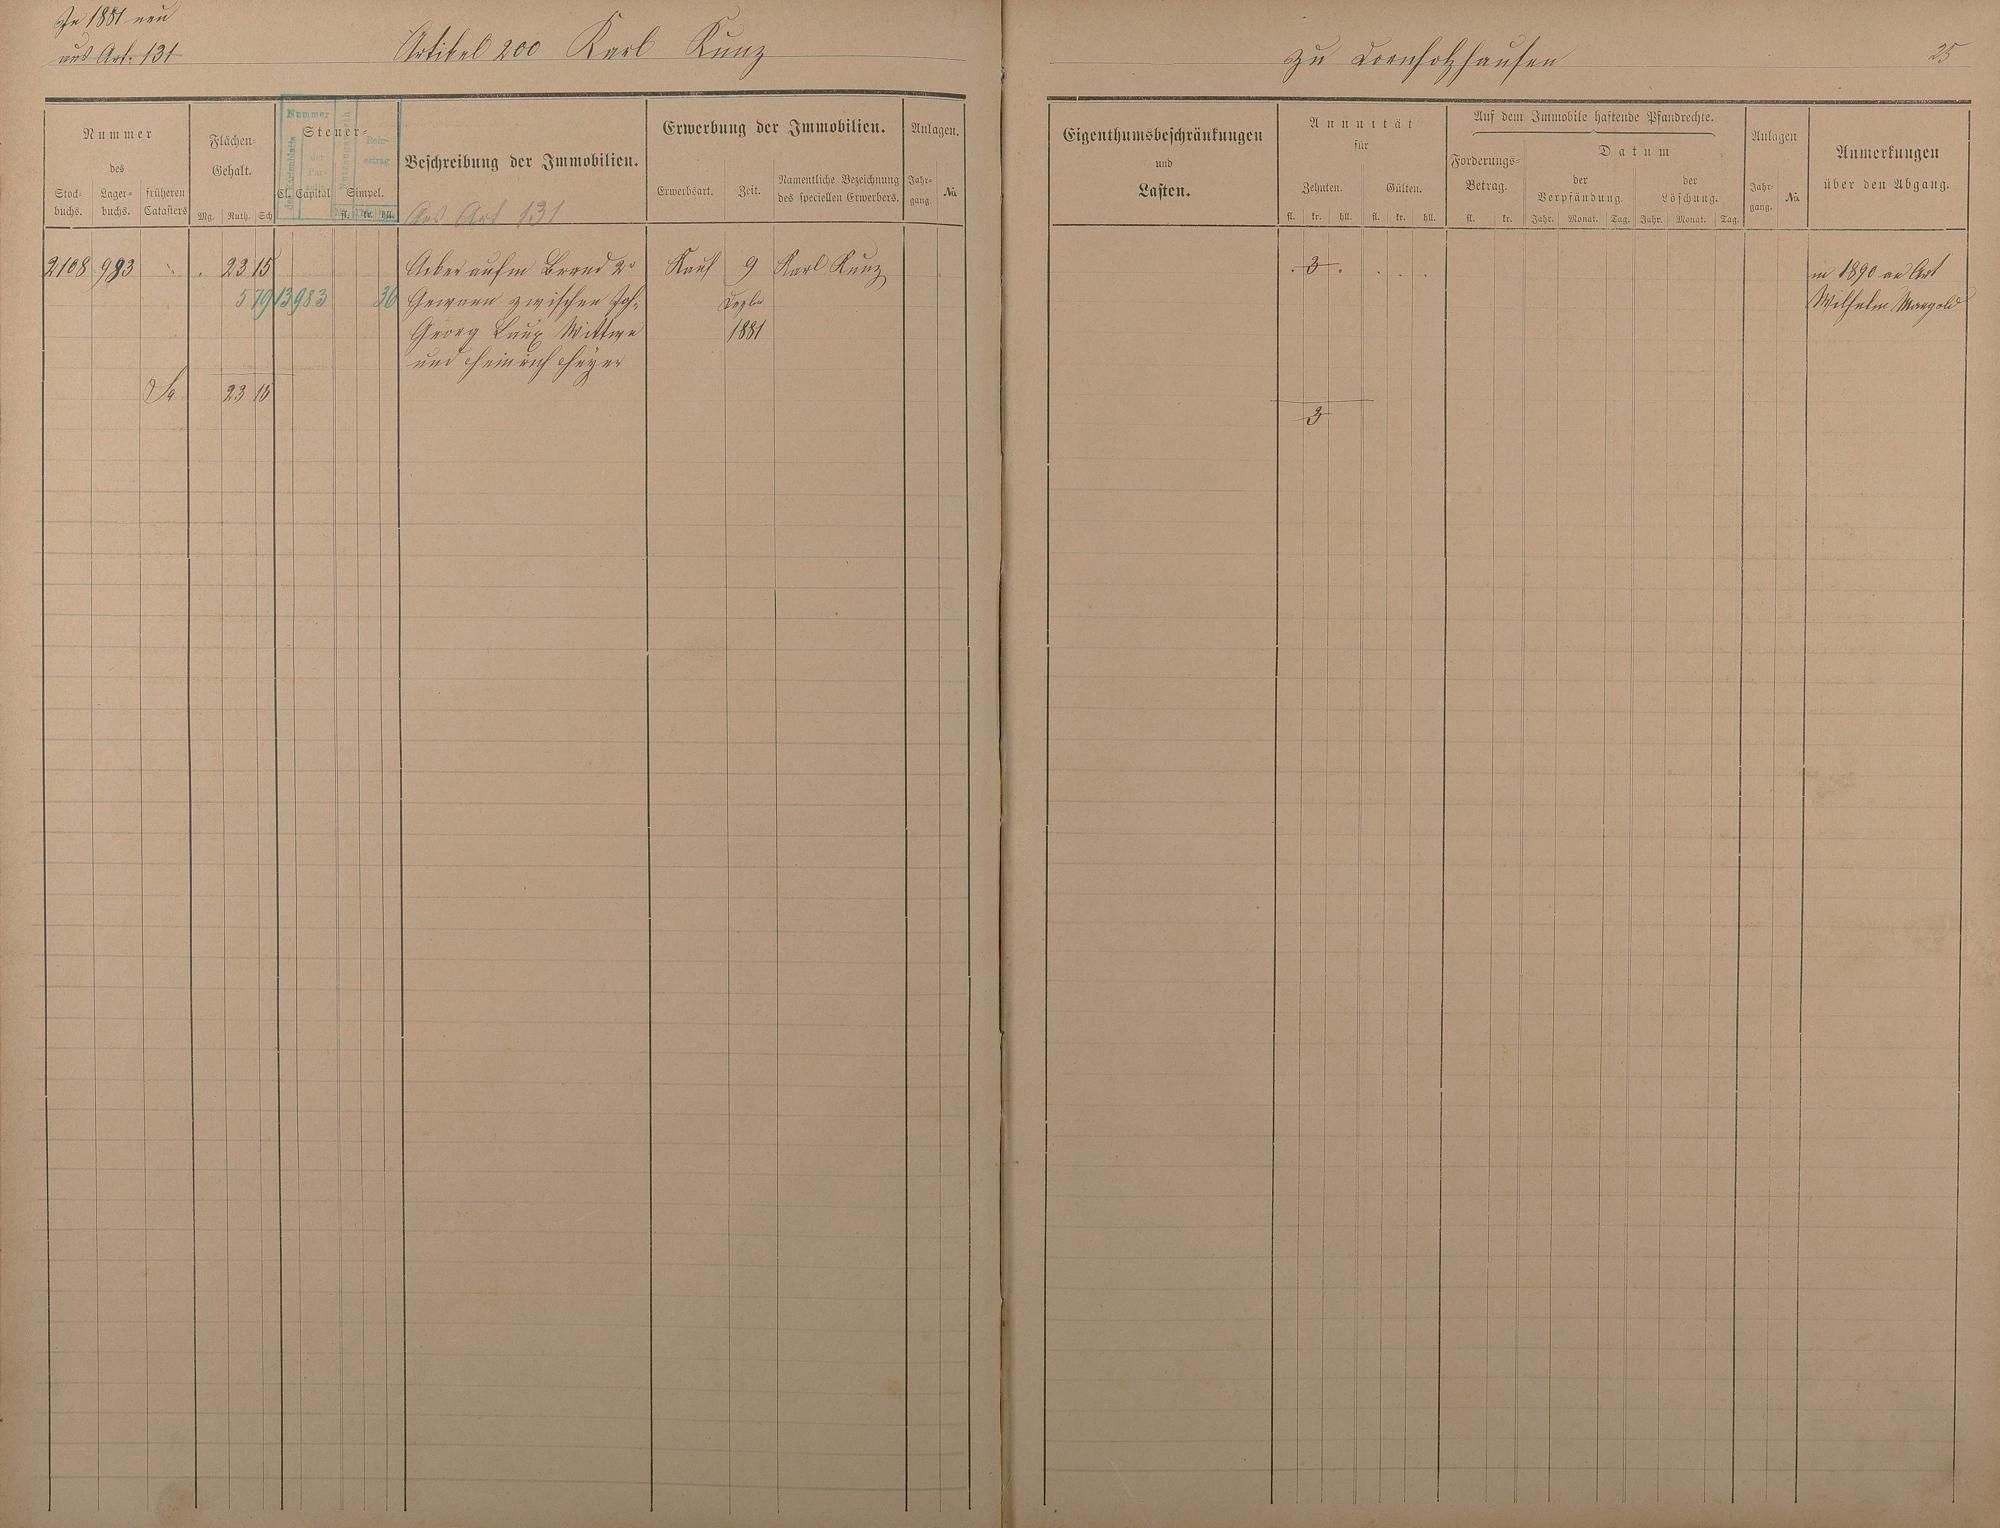 In 1881 neu
aus Art. 131
Artikel 200 Karl Kunz
Nummer
des
Stock-
buchs.
Lager-
buchs.
früheren
Catasters
Flächen-
Gehalt.
Mg. Ruth. Sch
Steuer-
Cl. Capital Simpel.
fl. kr. hll.
Nummer
des Kartenblatts
der
Par-
Rein-
ertrag
Beschreibung der Immobilien.
Aus Art 131
Erwerbung der Immobilien.
Erwerbsart. Zeit.
Namentliche Bezeichnung
des speciellen Erwerbers.
Anlagen.
Jahr-
gang. No.
2108 983 23 15 Acker aufm Brand 2r Kauf 9 Karl Kunz
5 79 13 983 36 Gewann zwischen Joh.
Georg Laux Wittwe 1881
und Heinrich Heyer
Sa 23 15
zu Dornholzhausen
25
Eigenthumsbeschränkungen
und
Lasten.
Annuität
für
Zehnten. Gülten.
fl. kr. hll. fl. kr. hll.
Auf dem Immobile haftende Pfandrechte.
Forderungs-
Betrag.
fl. kr.
Datum
der
Verpfändung.
der
Löschung.
Jahr. Monat. Tag. Jahr. Monat. Tag.
Anlagen
Jahr-
gang. No.
Anmerkungen
über den Abgang.
3 in 1890 an Art
Wilhelm
3